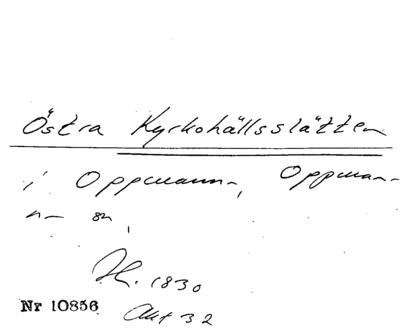 Östra Kyrkohällsslätten
i Oppmanna, Oppman-
na sn,
H. 1830
Nr 10856 Akt 32